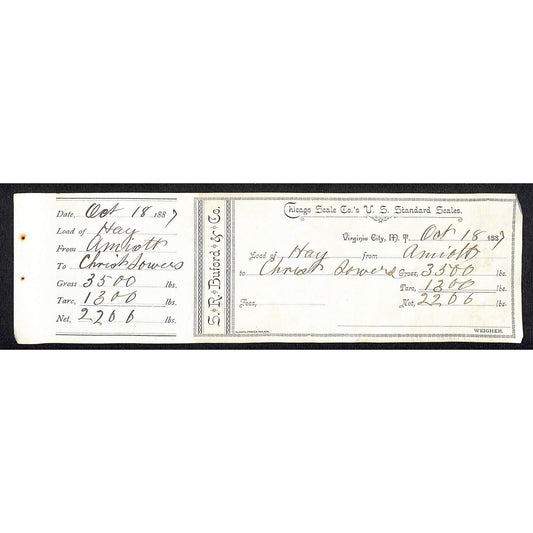 Date, Oct 18 1887
Load of Hay
From Amiott
To Christ Sowers
Gross 3500 lbs.
Tare, 1300 lbs.
Net, 2200 lbs.
S. R. Buford & Co.
Chicago Scale Co.'s U. S. Standard Scales.
Virginia City, M. T. Oct 18 1887
Load of Hay from Amiott
to Christ Sowers Gross, 3500 lbs.
Tare, 1300 lbs.
Fees, Net, 2200 lbs.
WEIGHER.